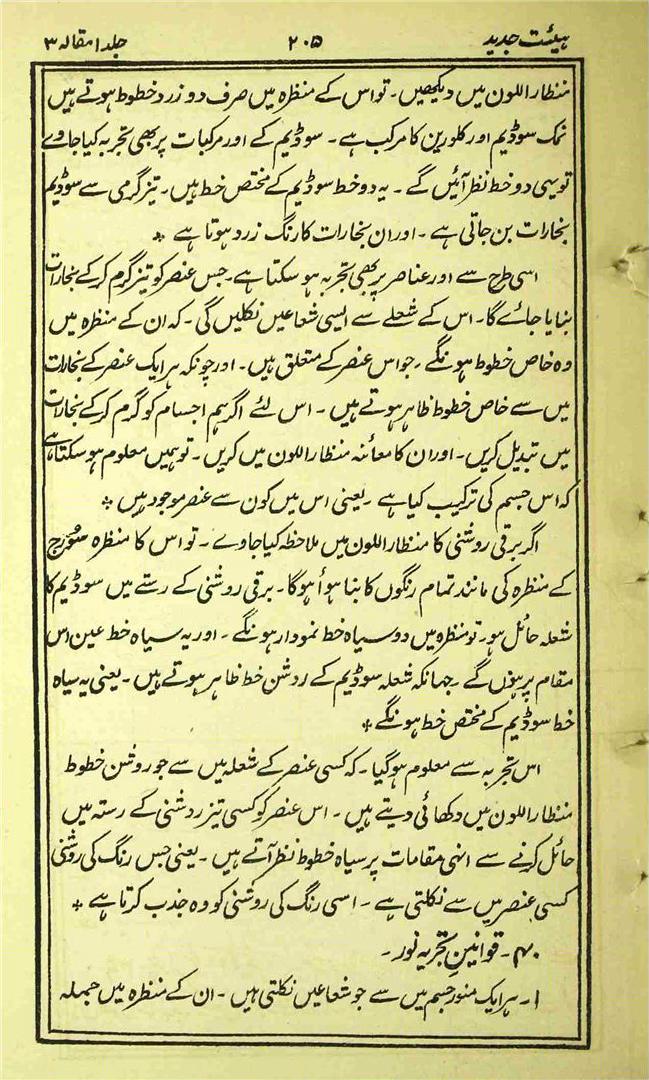 ہیئت جدید ۲۰۵ جلد ۱ مقالہ ۳
منظار اللون میں دیکھیں۔ تو اس کے منظرہ میں صرف دو زرد خطوط ہوتے ہیں
نمک سوڈیم اور کلورین کا مرکب ہے۔ سوڈیم کے اور مرکبات پر بھی تجربہ کیا جاوے
تو یہی دو خط نظر آئیں گے۔ یہ دو خط سوڈیم کے مختص خط ہیں۔ تیز گرمی سے سوڈیم
بخارات بن جاتی ہے۔ اور ان بخارات کا رنگ زرد ہوتا ہے *
اسی طرح سے اور عناصر پر بھی تجربہ ہو سکتا ہے۔ جس عنصر کو تیز گرم کرکے بخارات
بنایا جائے گا۔ اس کے شعلے سے ایسی شعاعیں نکلیں گی۔ کہ ان کے منظرہ میں
وہ خاص خطوط ہونگے۔ جو اس عنصر کے متعلق ہیں۔ اور چونکہ ہر ایک عنصر کے بخارات
میں سے خاص خطوط ظاہر ہوتے ہیں۔ اس لئے اگر ہم اجسام کو گرم کرکے بخارات
میں تبدیل کریں۔ اور ان کا معائنہ منظار اللون میں کریں۔ تو ہمیں معلوم ہو سکتا ہے
کہ اس جسم کی ترکیب کیا ہے۔ یعنی اس میں کون سے عنصر موجود ہیں *
اگر برقی روشنی کا منظار اللون میں ملاحظہ کیا جاوے۔ تو اس کا منظرہ سورج
کے منظرہ کی مانند تمام رنگوں کا بنا ہوأ ہوگا۔ برقی روشنی کے رستے میں سوڈیم کا
شعلہ حائل ہو۔ تو منظرہ میں دو سیاہ خط نمودار ہونگے۔ اور یہ سیاہ خط عین اس
مقام پر ہوں گے۔ جہانکہ شعلہ سوڈیم کے روشن خط ظاہر ہوتے ہیں۔ یعنی یہ سیاہ
خط سوڈیم کے مختص خط ہونگے *
اس تجربہ سے معلوم ہوگیا۔ کہ کسی عنصر کے شعلہ میں سے جو روشن خطوط
منظار اللون میں دکھائی دیتے ہیں۔ اس عنصر کو کسی تیز روشنی کے رستہ میں
حائل کرنے سے انہی مقامات پر سیاہ خطوط نظر آتے ہیں۔ یعنی جس رنگ کی روشنی
کسی عنصر میں سے نکلتی ہے۔ اسی رنگ کی روشنی کو وہ جذب کرتا ہے *
۴۰۔ قوانین تجزیہ نور۔
۱۔ ہر ایک منور جسم میں سے جو شعاعیں نکلتی ہیں۔ ان کے منظرہ میں جملہ